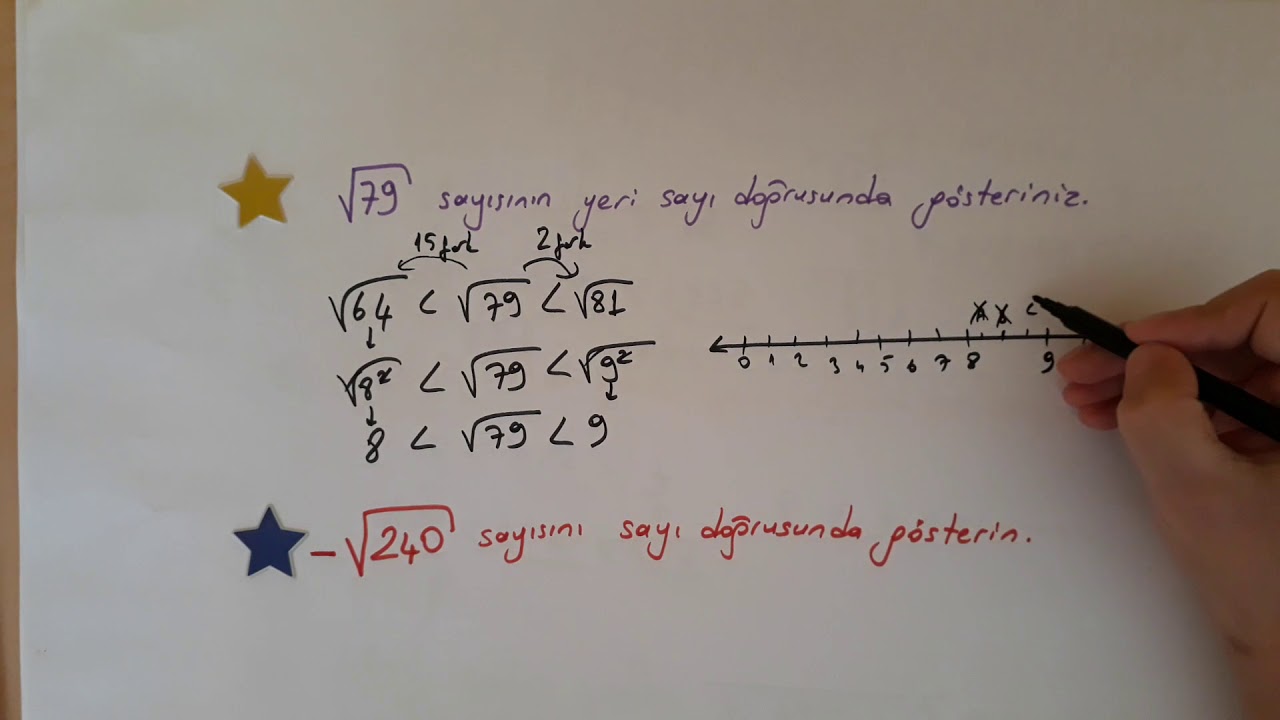 √79 sayısının yeri sayı doğrusunda gösteriniz.
15 fark 2 fark
√64 < √79 < √81
√8² < √79 < √9²
8 < √79 < 9
A B C
0 1 2 3 4 5 6 7 8 9
-√240 sayısını sayı doğrusunda gösterin.